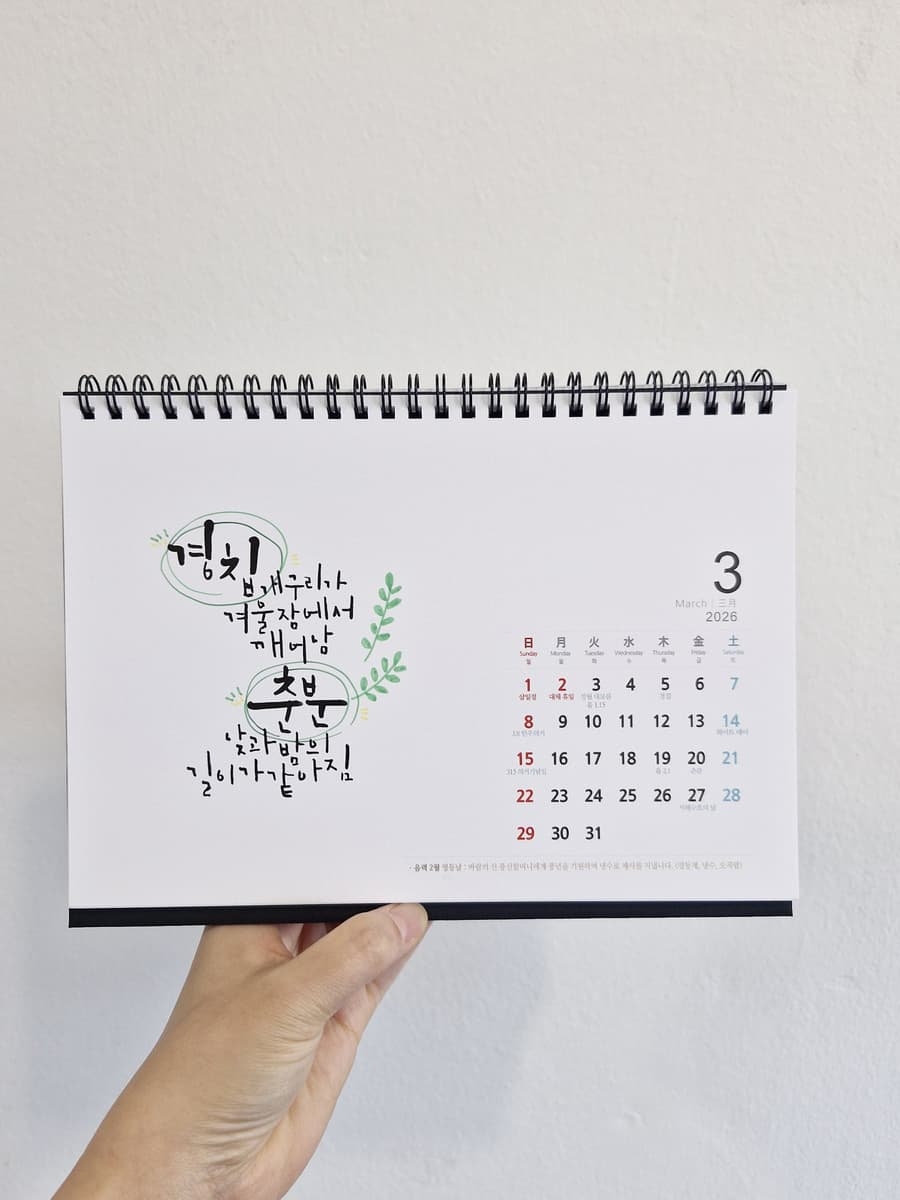 경칩
개구리가
겨울잠에서
깨어남
춘분
낮과 밤의
길이가 같아짐
3
March | 三月
2026
日 月 火 水 木 金 土
Sunday Monday Tuesday Wednesday Thursday Friday Saturday
일 월 화 수 목 금 토
1 2 3 4 5 6 7
삼일절 대체 휴일 정월 대보름 경칩
음 1.15
8 9 10 11 12 13 14
3.8 민주의거 화이트 데이
15 16 17 18 19 20 21
3.15 의거기념일 음 2.1 춘분
22 23 24 25 26 27 28
서해수호의 날
29 30 31
· 음력 2월 영등날 : 바람의 신 풍신할머니에게 풍년을 기원하며 냉수로 제사를 지냅니다. (영등제, 냉수, 오곡밥)